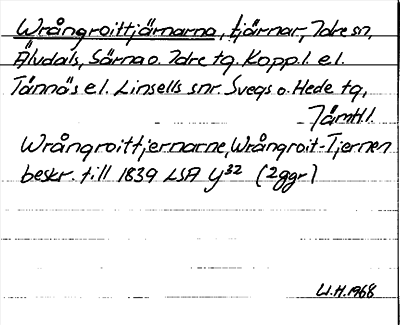 Wrångroittjärnarna, tjärnar, Idre sn,
Älvdals, Särna o. Idre tg. Kopp. l. el.
Tännäs el. Linsells snr. Svegs o. Hede tg,
Jämtl. l.
Wrångroittjernarne, Wrångroit-Tjernen
beskr. till 1839 LSA y32 (2ggr)
W.H. 1968